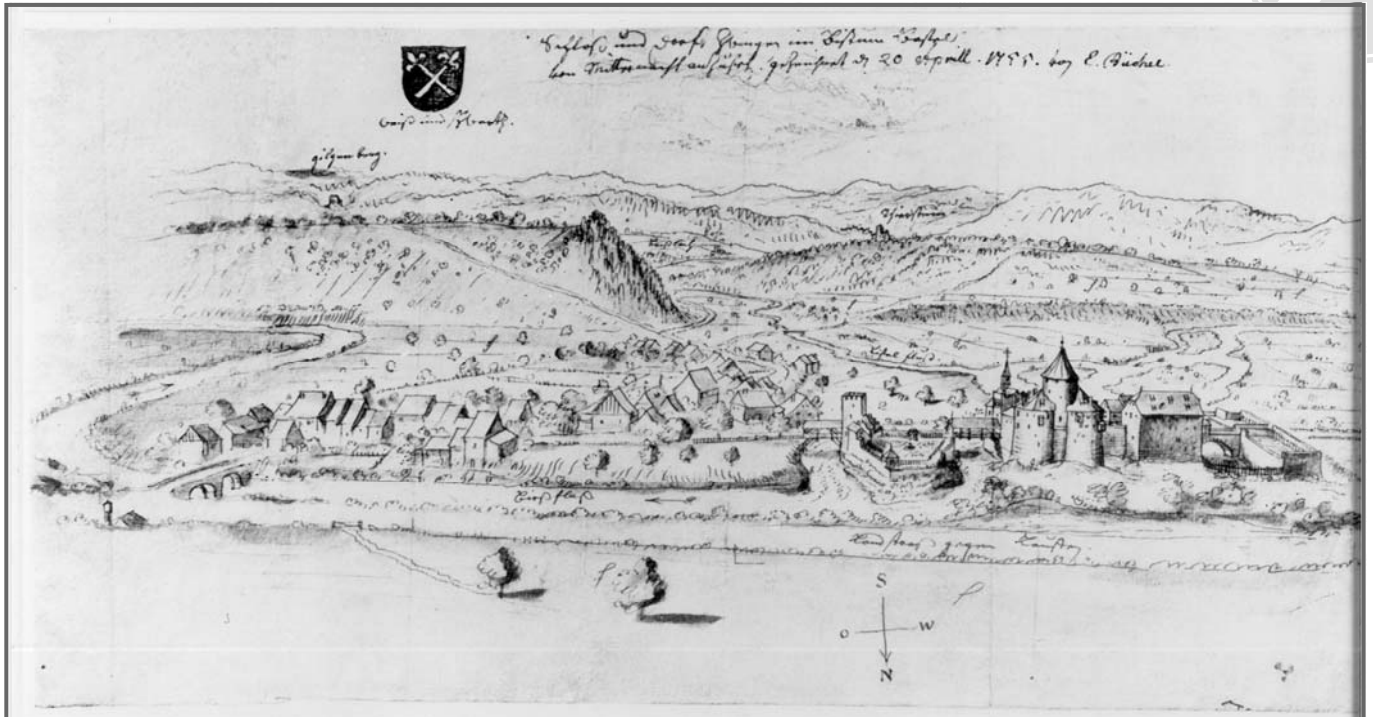 Schloß und Dorff Zwingen im Bistum Basel,
von Mitternacht anzusehen, gezeichnet d. 20 Aprill. 1755. von E. Büchel.
weiß und schwartz.
gilgenberg.
Thierstein
Birß fluß
Landstraß gegen Lauffen
S
O W
N